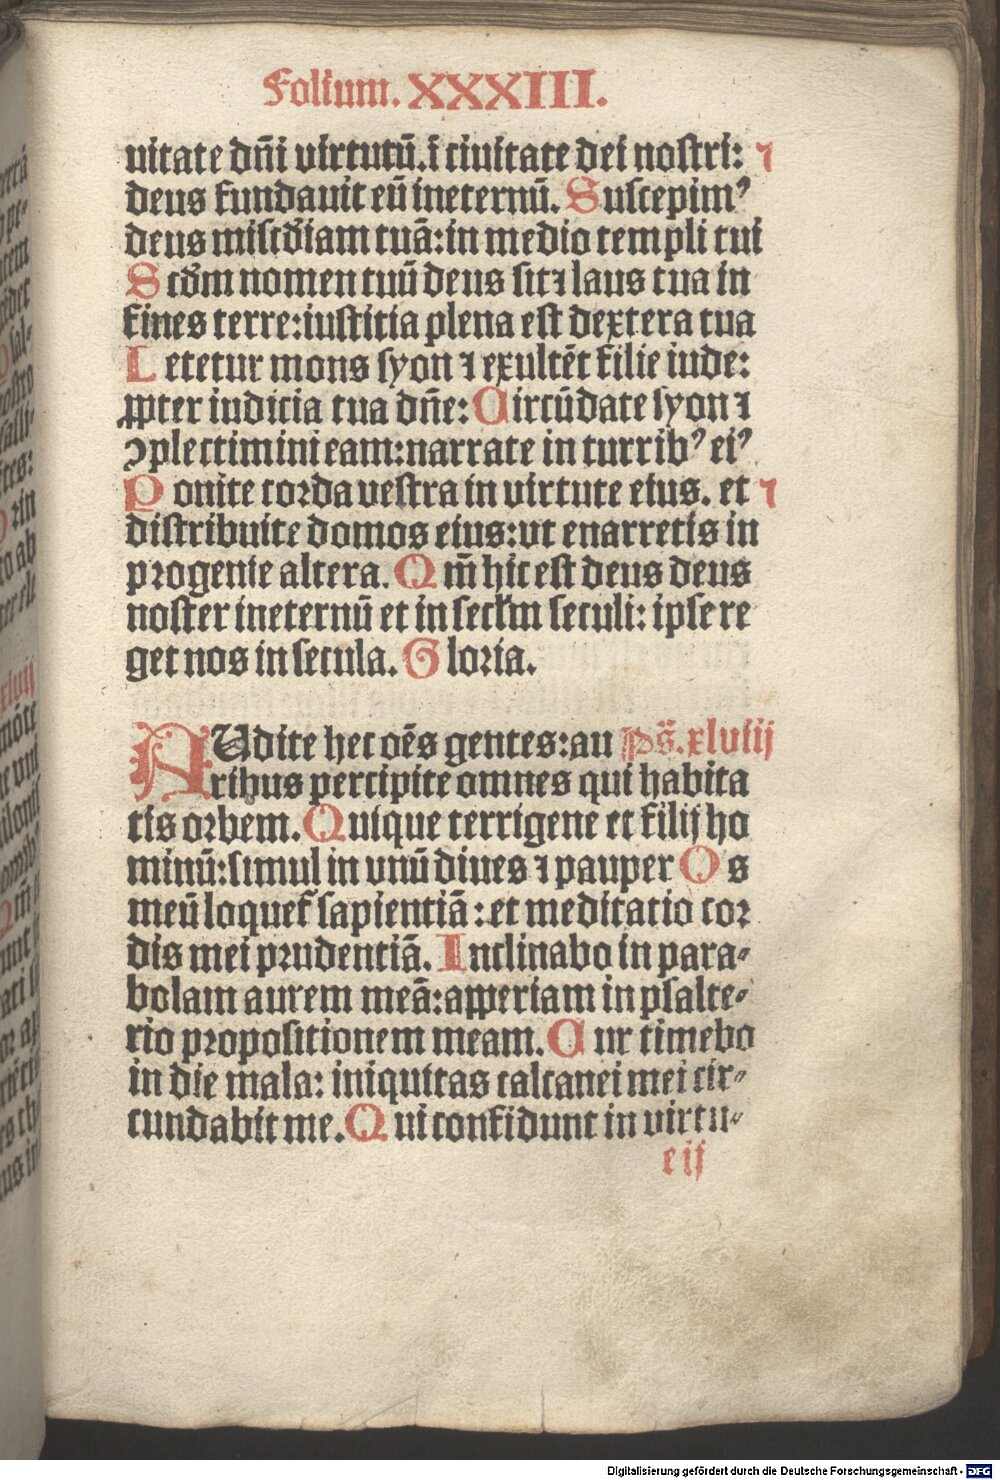 Folium. XXXIII.
uitate dñi virtutū.ī ciuitate dei nostri: ⁊
deus fundauit eū ineternū. Suscepimꝰ
deus misc̄diam tuā: in medio templi tui
Scd̄m nomen tuū deus sic ⁊ laus tua in
fines terre: iusticia plena est dextera tua
Letetur mons syon ⁊ exultēt filie iude:
ꝓpter iudicia tua dn̄e: Circūdate syon ⁊
ꝯplectimini eam: narrate in turribꝰ eiꝰ
Ponite corda vestra in virtute eius. et ⁊
distribuite domos eius: vt enarretis in
progenie altera. Qm̄ hic est deus deus
noster ineternū et in secl̄m seculi: ipse re
get nos in secula. Gloria.
AUdite hec oēs gentes: au ps̄. xlviij
ribus percipite omnes qui habita
tis orbem. Quique terrigene et filij ho
minū: simul in vnū diues ⁊ pauper Os
meū loquet᷑ sapientiā: et meditatio cor
dis mei prudentiā. Inclinabo in para⸗
bolam aurem meā: apperiam in psalte⸗
rio propositionem meam. Cur timebo
in die mala: iniquitas calcanei mei cir⸗
cundabit me. Qui confidunt in virtu⸗
e ij
Digitalisierung gefördert durch die Deutsche Forschungsgemeinschaft - DFG